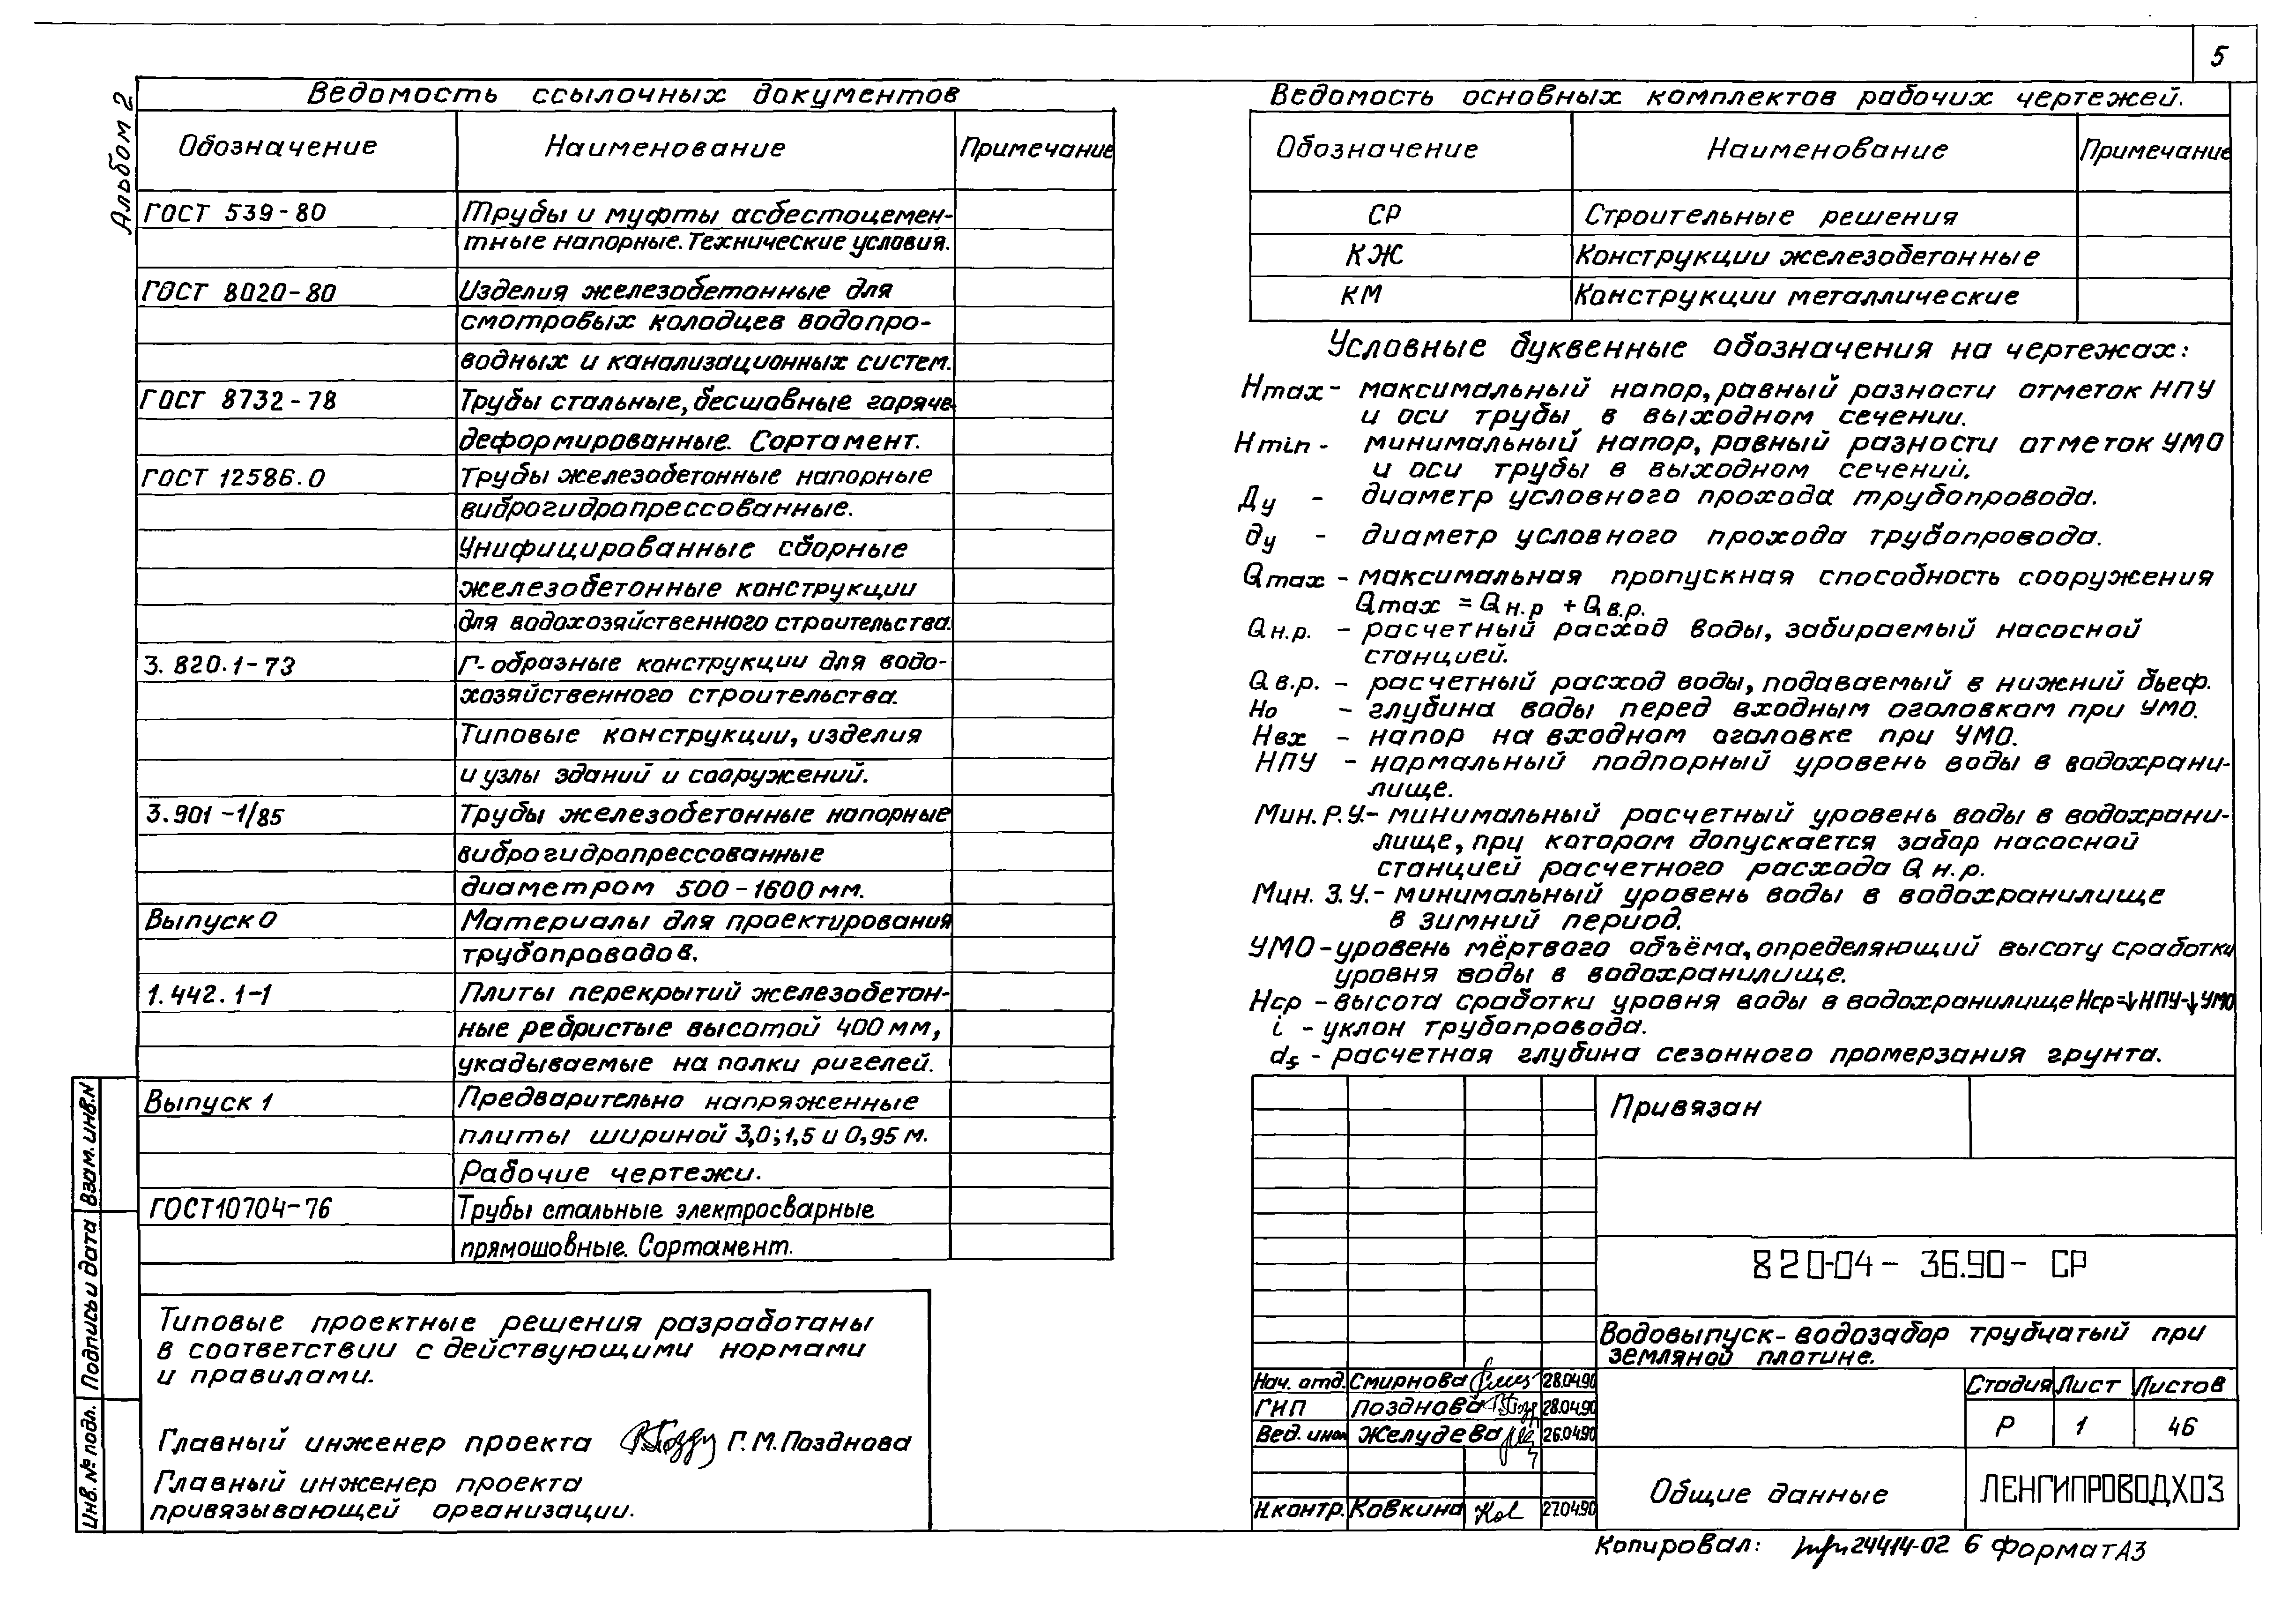 5
Альбом 2
Ведомость ссылочных документов
Обозначение Наименование Примечание
ГОСТ 539-80 Трубы и муфты асбестоцемен-
тные напорные. Технические условия.
ГОСТ 8020-80 Изделия железобетонные для
смотровых колодцев водопро-
водных и канализационных систем.
ГОСТ 8732-78 Трубы стальные, бесшовные горяче-
деформированные. Сортамент.
ГОСТ 12586.0 Трубы железобетонные напорные
виброгидропрессованные.
Унифицированные сборные
железобетонные конструкции
для водохозяйственного строительства.
3.820.1-73 Г-образные конструкции для водо-
хозяйственного строительства.
Типовые конструкции, изделия
и узлы зданий и сооружений.
3.901-1/85 Трубы железобетонные напорные
виброгидропрессованные
диаметром 500-1600 мм.
Выпуск 0 Материалы для проектирования
трубопроводов.
1.442.1-1 Плиты перекрытий железобетон-
ные ребристые высотой 400 мм,
укадываемые на полки ригелей.
Выпуск 1 Предварительно напряженные
плиты шириной 3,0; 1,5 и 0,95 м.
Рабочие чертежи.
ГОСТ 10704-76 Трубы стальные электросварные
прямошовные. Сортамент.
Типовые проектные решения разработаны
в соответствии с действующими нормами
и правилами.
Главный инженер проекта Г.М.Позднова
Главный инженер проекта
привязывающей организации.
Взам. инв.N
Подпись и дата
Инв. № подл.
Ведомость основных комплектов рабочих чертежей.
Обозначение Наименование Примечание
СР Строительные решения
КЖ Конструкции железобетонные
КМ Конструкции металлические
Условные буквенные обозначения на чертежах:
Hmax - максимальный напор, равный разности отметок НПУ
и оси трубы в выходном сечении.
Hmin - минимальный напор, равный разности отметок УМО
и оси трубы в выходном сечений.
Ду - диаметр условного прохода трубопровода.
ду - диаметр условного прохода трубопровода.
Qmax - максимальная пропускная способность сооружения
Qmax = Qн.р + Qв.р.
Qн.р. - расчетный расход воды, забираемый насосной
станцией.
Qв.р. - расчетный расход воды, подаваемый в нижний бьеф.
Но - глубина воды перед входным оголовком при УМО.
Нвх - напор на входном оголовке при УМО.
НПУ - нормальный подпорный уровень воды в водохрани-
лище.
Мин. Р.У. - минимальный расчетный уровень воды в водохрани-
лище, при котором допускается забор насосной
станцией расчетного расхода Qн.р.
Мин. З.У. - минимальный уровень воды в водохранилище
в зимний период.
УМО - уровень мёртвого объёма, определяющий высоту сработки
уровня воды в водохранилище.
Нср - высота сработки уровня воды в водохранилище Нср=↓НПУ-↓УМО
i - уклон трубопровода.
ds - расчетная глубина сезонного промерзания грунта.
Привязан
820-04-36.90-СР
Водовыпуск-водозабор трубчатый при
земляной плотине.
Нач. отд. Смирнова 28.04.90
ГИП Позднова 28.04.90
Вед. инж. Желудева 26.04.90
Н.контр. Ковкина 27.04.90
Стадия Лист Листов
Р 1 46
Общие данные
ЛЕНГИПРОВОДХОЗ
Копировал: 24414-02 6 Формат А3